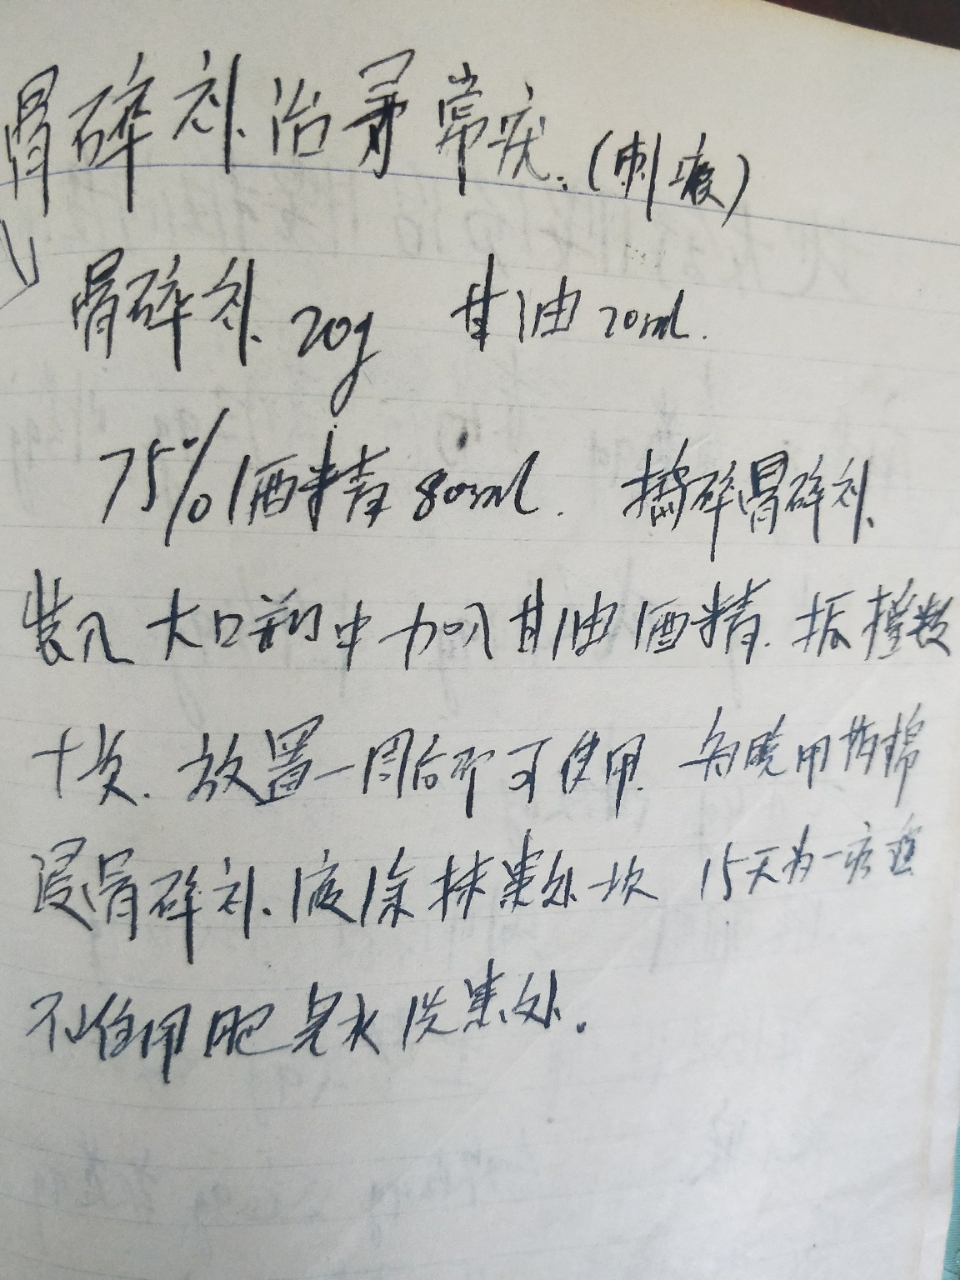 骨碎补治寻常疣.(刺瘊)
骨碎补20g 甘油20ml.
75%酒精80ml. 捣碎骨碎补
装入大口瓶中加入甘油酒精.振摇数
十次.放置一周后即可使用.每晚用药棉
浸骨碎补液涂抹患处一次 15天为一疗程
不能用肥皂水洗患处.